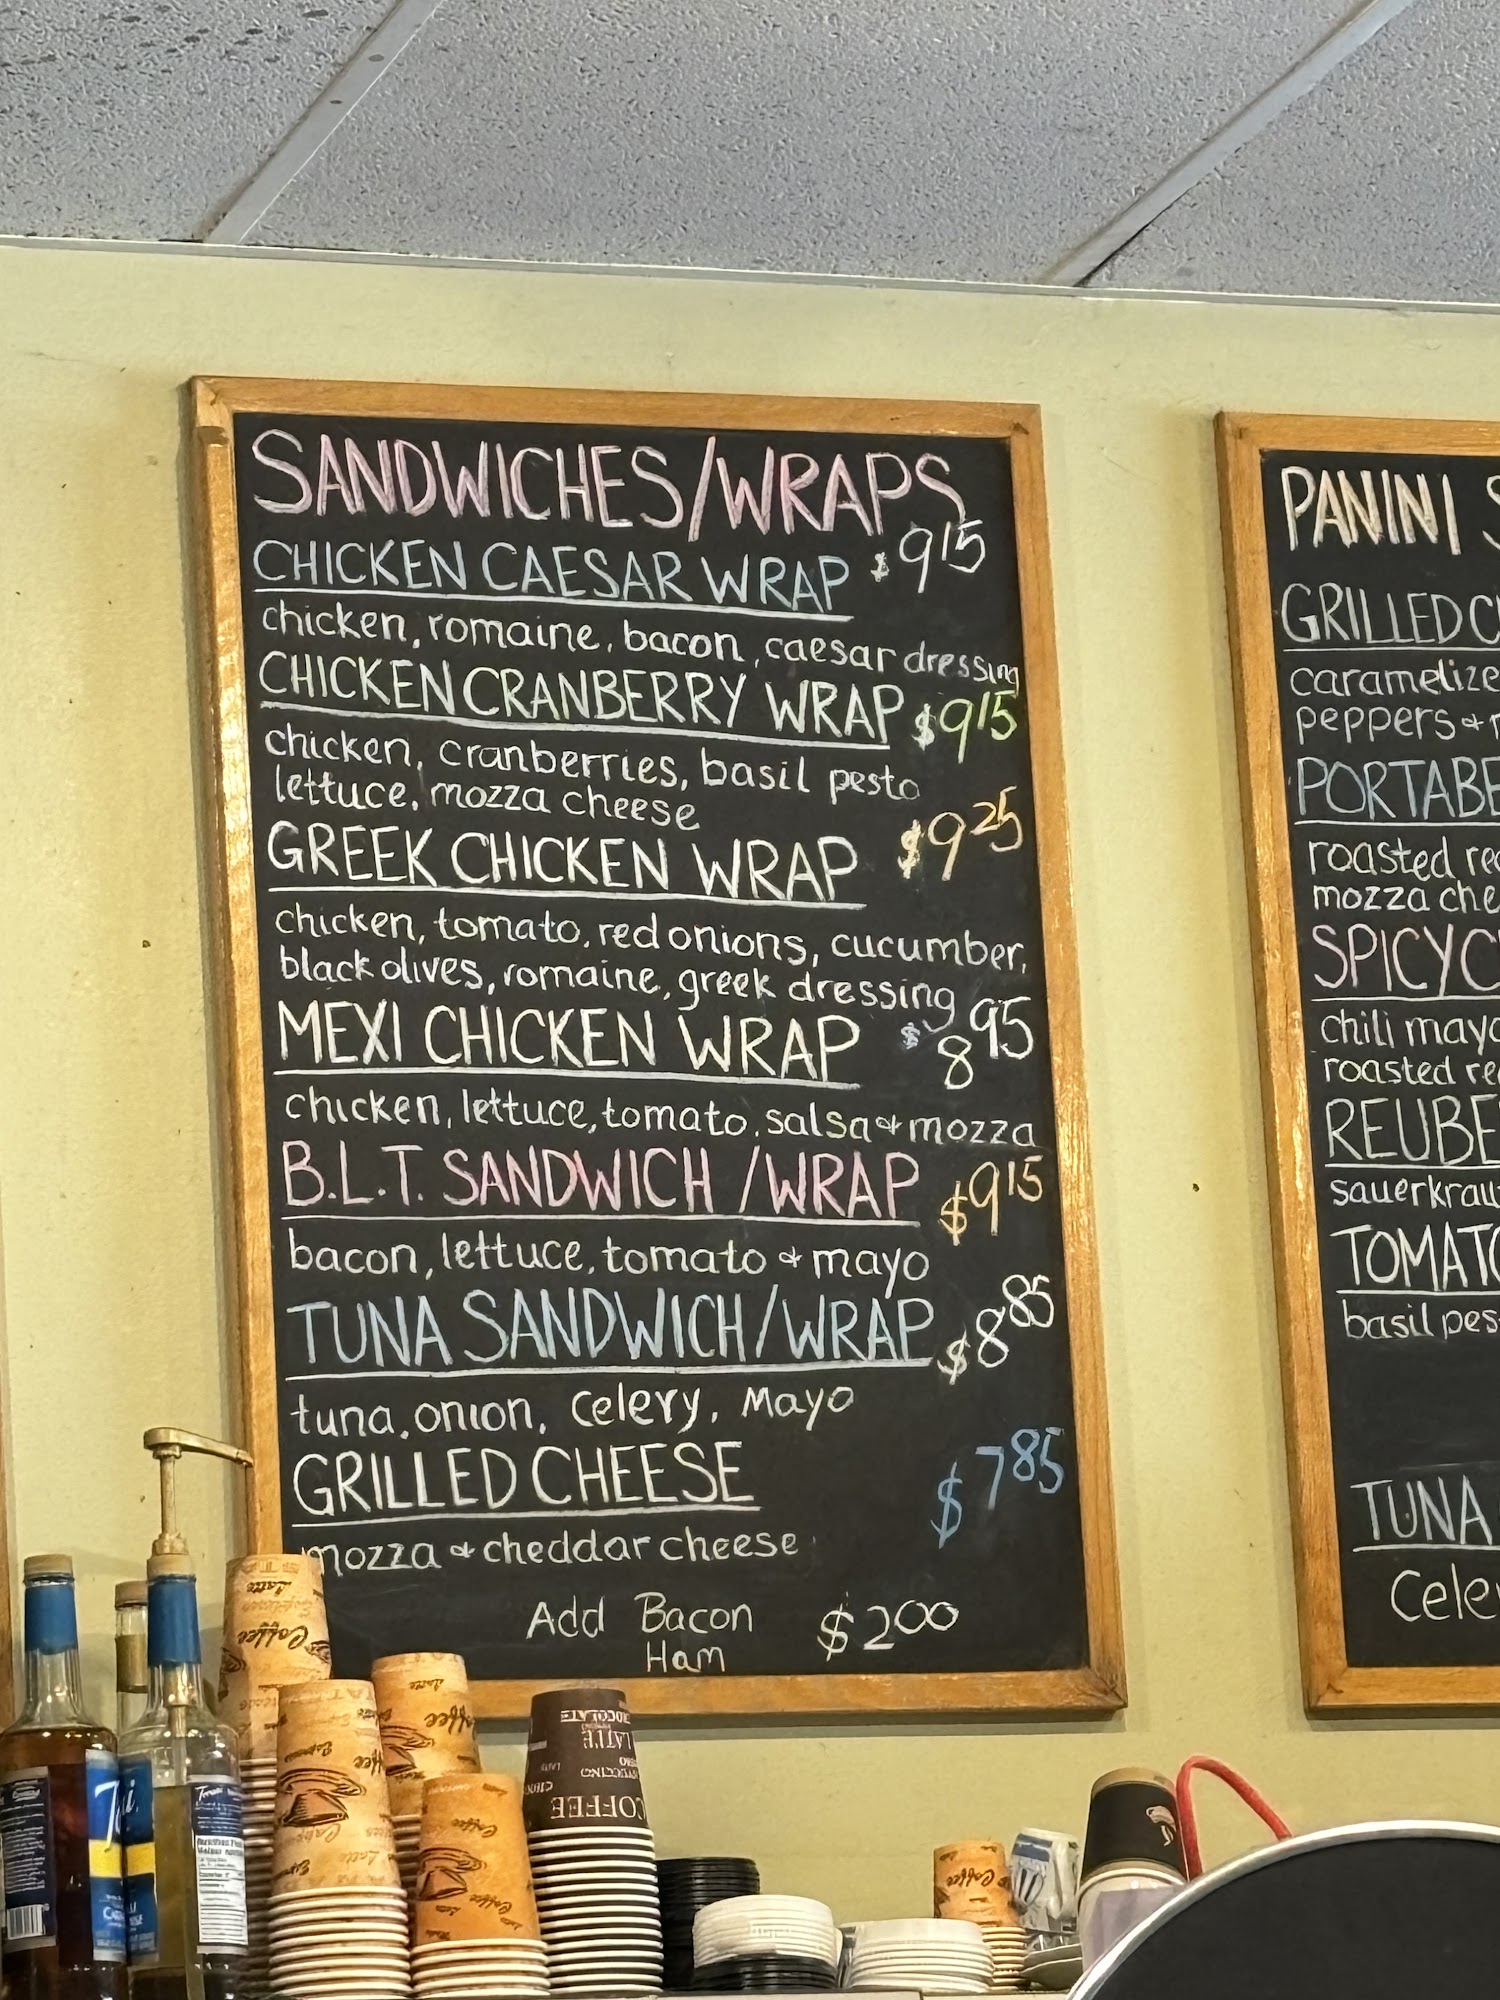 SANDWICHES/WRAPS
CHICKEN CAESAR WRAP $9 15
chicken, romaine, bacon, caesar dressing
CHICKEN CRANBERRY WRAP $9 15
chicken, cranberries, basil pesto
lettuce, mozza cheese
GREEK CHICKEN WRAP $9 25
chicken, tomato, red onions, cucumber,
black olives, romaine, greek dressing
MEXI CHICKEN WRAP $8 95
chicken, lettuce, tomato, salsa & mozza
B.L.T. SANDWICH /WRAP $9 15
bacon, lettuce, tomato & mayo
TUNA SANDWICH/WRAP $8 85
tuna, onion, celery, Mayo
GRILLED CHEESE $7 85
mozza & cheddar cheese
Add Bacon $2 00
Ham
PANINI S
GRILLED C
caramelize
peppers &
PORTABE
roasted re
mozza che
SPICY C
chili mayo
roasted re
REUBE
sauerkrau
TOMATO
basil pes
TUNA
Cele
Latte
Coffee
Coffee
CHOCOLATE
LATTE
COFFEE
Coffee
Torani